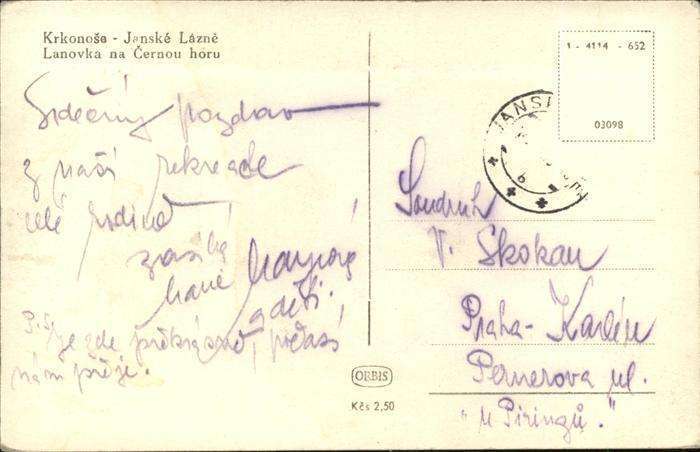 Krkonoše - Janské Lázně
Lanovka na Černou horu
1 - 4114 - 652
03098
JANSK
Srdečný pozdrav
z naší rekreace
celé rodině
zasílá
a dětí.
P.S. Je zde překrásně, počasí
nám přeje.
Soudruh
V. Skokan
Praha - Karlín
Pernerova ul.
"u Piringů."
ORBIS
Kčs 2,50